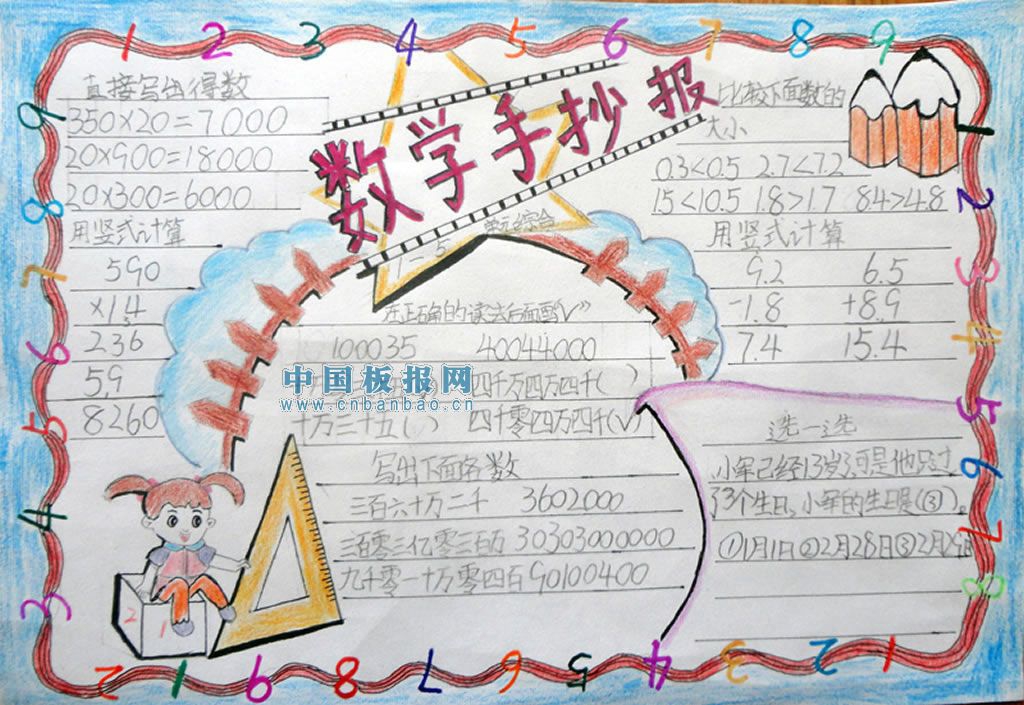 1 2 3 4 5 6 7 8 9
数学手抄报
1-5 单元综合
直接写出得数
350×20=7000
20×900=18000
20×300=6000
用竖式计算
590
×14
236
59
8260
比较下面数的
大小
0.3<0.5 2.7<7.2
1.5<10.5 1.8>1.7 8.4>4.8
用竖式计算
9.2 6.5
-1.8 +8.9
7.4 15.4
在正确的读法后面画"√"
100035 40044000
四千万四万四千( )
十万三十五( ) 四千零四万四千(√)
中国板报网
www.cnbanbao.cn
写出下面各数
三百六十万二千 3602000
三百零三亿零三百万 30303000000
九千零一十万零四百 90100400
选一选
小军已经13岁,可是他只过
了3个生日,小军的生日是(③)。
①1月1日②2月28日③2月29日
2 1
9 8 7 6 5 4 3
2 3 4 5 6 7 8
2 1 9 8 7 6 5 4 3 2 1